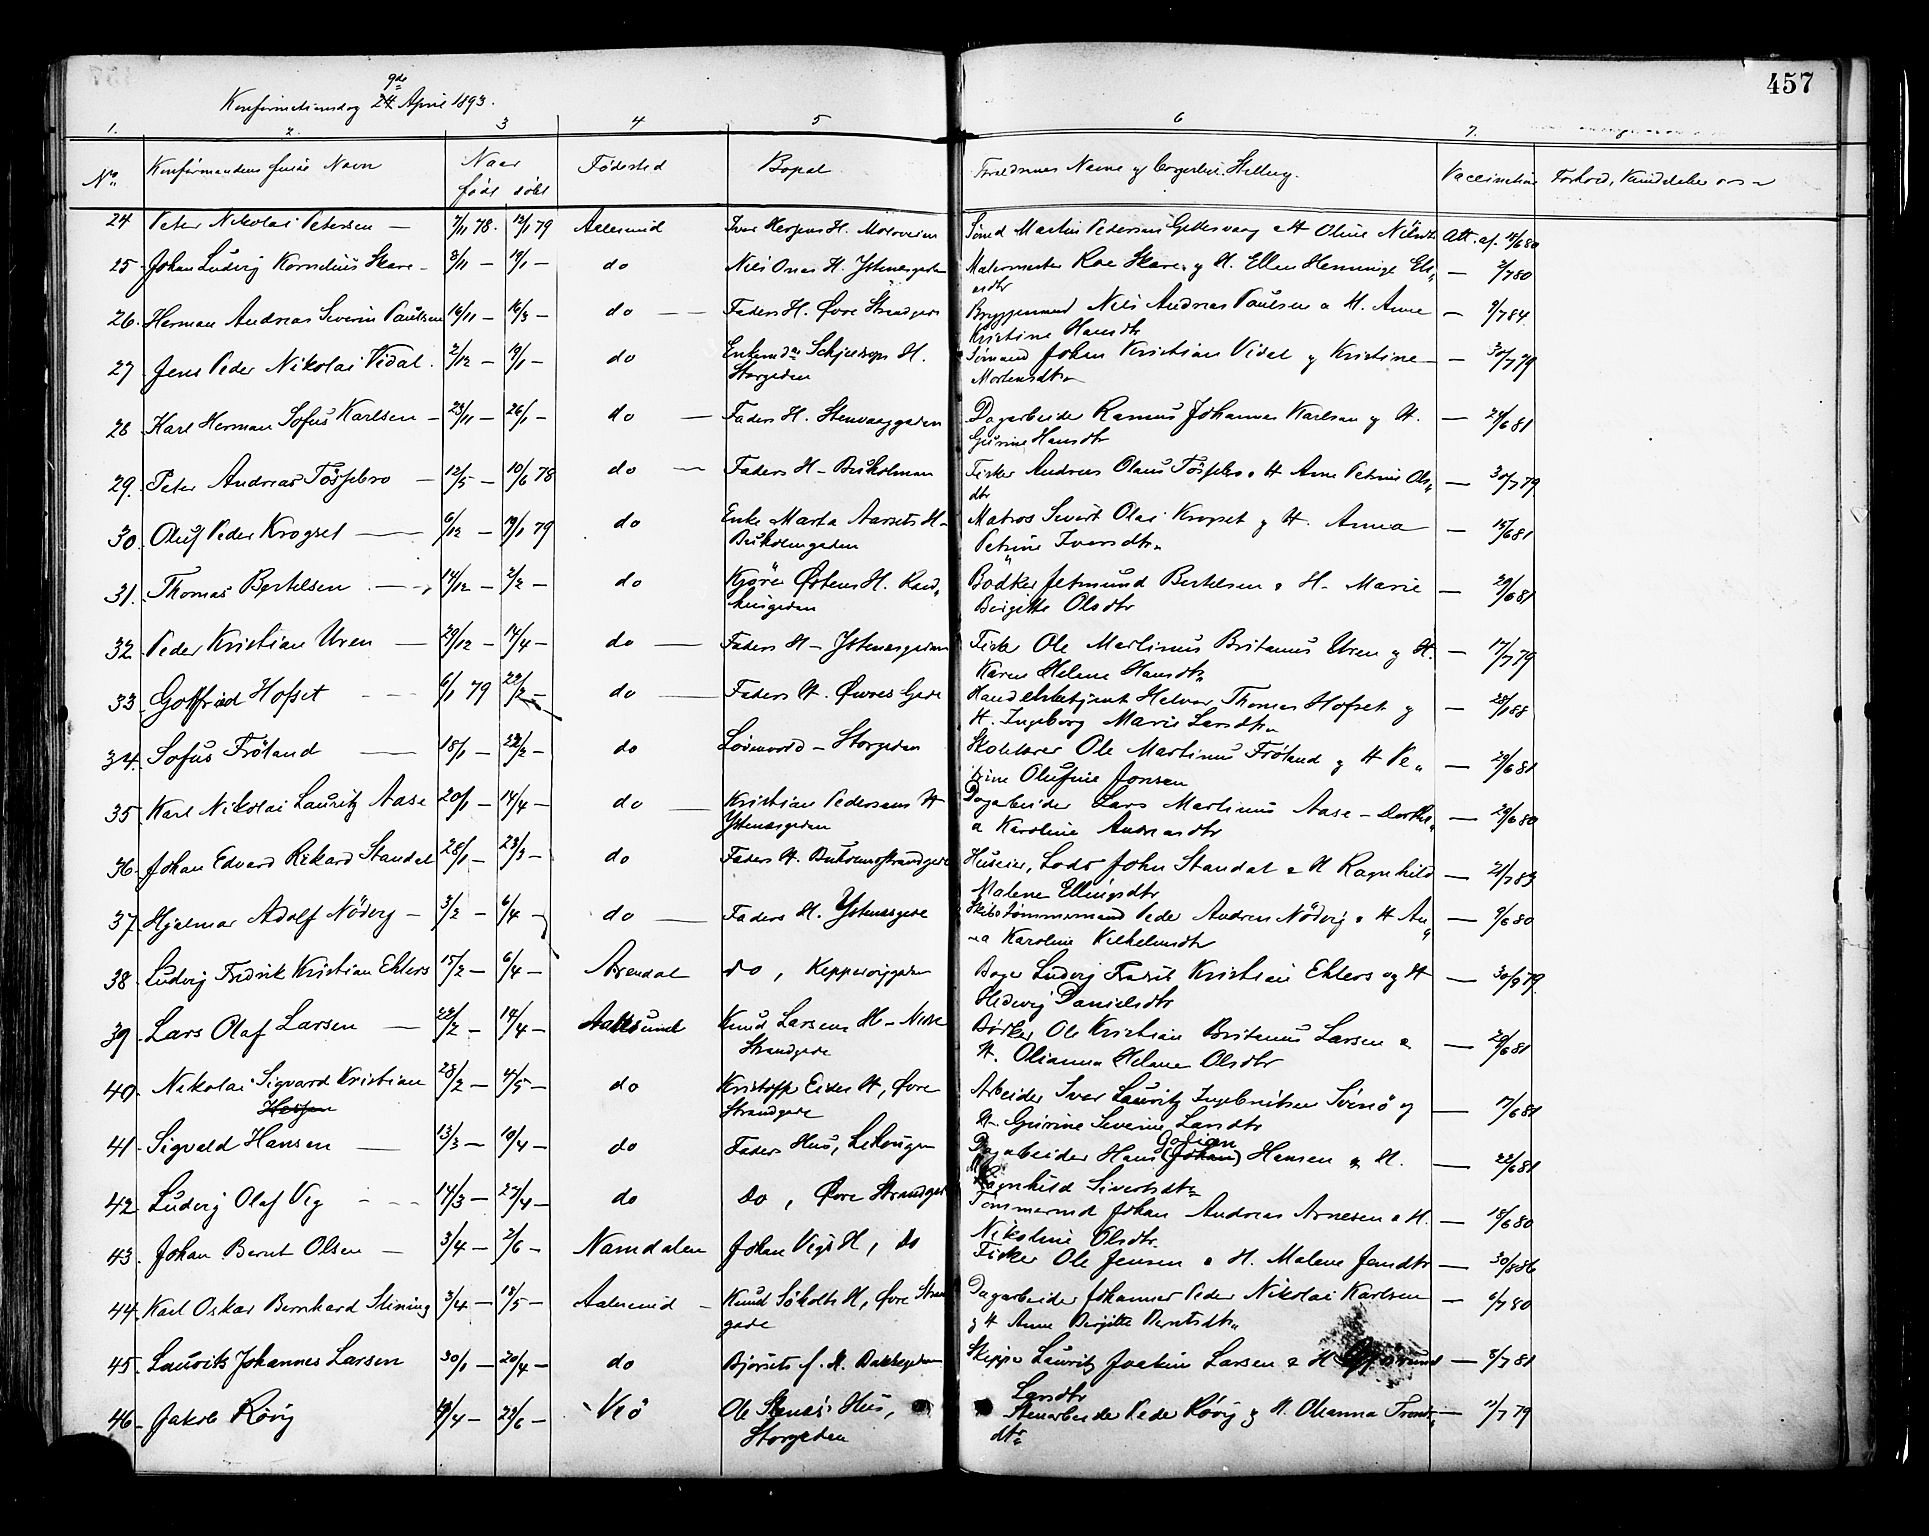 457
9de
Konfirmationsdag 24 April 1893.
1. 2. 3 4 5 6 7.
No Konfirmandens fulde Navn Naar født døbt Fødested Bopæl Forældrenes Navne og borgerlige Stilling. Vaccination Forhold, Kundskaber
24 Peter Nikolai Petersen — 7/11 78. 12/1 79 Aalesund Martin Pedersen Gjettesvaag & H Oline Att. af. 12/6 80
25 Johan Ludvig Kornelius Skare — 3/11 — 19/1 — do Nils Onas H. Ystenæsgaden Malermester Roe Skare og H. Ellen Henninge — 2/7 80
26. Herman Andreas Severin Paulsen 16/11 — 16/3 — do — Faders H. Øvre Strandgade Bryggemand Nils Andreas Paulsen & H. Anne — 9/7 84
Kristine Hansdtr
27 Jens Peder Nikolai Vidal. 2/12 — 19/1 — do H. Sømand Johan Kristian Vidal og Kristine — 30/7 79
Storgaden Mortensdtr
28 Karl Herman Sofus Karlsen — 23/11 — 26/1 — do — Faders H. Stenvaaggaden Dagarbeider Rasmus Johannes Karlsen og H. — 24/6 81
Gurine Hansdtr
29. Peter Andreas Tøssebro — 12/5 — 10/6 78 do — Faders H — Buholmen Fisker Andreas Olaus Tøssebro & H Anne Petrine Ols — 30/7 79
dtr
30. Oluf Peder Krogset — 6/12 — 19/1 79 do Enke Marta Aarsets H — Matros Sivert Olai Krogset og H. Anna — 15/6 81
Buholmgaden Petrine Iversdtr
31. Thomas Bertelsen — 14/12 — 2/2 — do Østens H. Bødker Jetmund Bertelsen & H — Marie — 29/6 81
Birgitte Olsdtr
32. Peder Kristian Uren — 29/12 — 14/4 — do — Faders H — Ystenæsgaden Fisker Ole Martinus Britanus Uren og H. — 17/7 79
Karen Helene Hansdtr
33 Gotfred Hofset — 6/1 79 22/2 — do — Faders H. Øvres Gade Handelsbetjent Thomas Hofset og — 28/1 88
H. Ingeborg Marie Larsdtr
34. Sofus Frøland — 18/1 — 22/2 — do — Storgaden Skolelærer Ole Martinus Frøland og H Pe — 29/6 81
trine Olufine Jonsen
35 Karl Nikolai Lauritz Aase 20/1 — 14/4 — do — Kristian Pedersens H Dagarbeider Lars Martinus Aase — — 29/6 80
Ystenæsgaden Karoline Andreasdtr
36 Johan Edvard Rikard Standal 28/1 — 23/3 — do Faders H. Buholmstrandgade Huseier, Lods John Standal & H Ragnhild — 21/7 83
Malene Ellingsdtr
37 Hjalmar Adolf Nødvig — 3/2 — 6/4 — do — Faders H. Ystenæsgade Skibstømmermand Peder Andreas Nødvig & H An — 9/6 80
na Karoline Vilhelmsdtr
38 Ludvig Fredrik Kristian Ehlers 15/2 — 6/4 — Arendal do, Keppervigaden Bager Ludvig Fredrik Kristian Ehlers og H — 30/9 79.
Hedevig Danielsdtr
39 Lars Olaf Larsen — 22/2 — 14/4 — Aalesund Knud Larsens H — Nedre Bødker Ole Kristian Britanus Larsen & — 29/6 81
Strandgade H. Olianna Helene Olsdtr
40 Nikolai Sigvard Kristian 28/2 — 4/5 — do Kristoffer Eides H, Øvre Arbeider Ivar Lauritz Ingebrigtsen og — 17/6 81
Strandgade H. Gurine Severine Larsdtr
41 Sigvald Hansen — 13/3 — 19/4 — do Faders Hus, Dagarbeider Hans (Johan) Hansen & H. — 22/6 81
Ragnhild Sivertsdtr
42 Ludvig Olaf Vig — 14/3 — 27/4 — do do, Øvre Strandgade Tømmermd Johan Andreas Arnesen & H. — 18/6 80
Nikoline Olsdtr
43 Johan Bernt Olsen — 3/4 — 2/6 — Namdalen Johan Vigs H, do Fisker Ole Jensen & H. Malene Jensdtr — 30/8 86
44 Karl Oskar Bernhard Slining 3/4 — 18/5 — Aalesund — Knud Søholts H, Øvre Stran Dagarbeider Johannes Peder Nikolai Karlsen — 6/7 80
gade og H Anne Birgitte Berntsdtr
45 Laurits Johannes Larsen 30/1 — 20/4 — do Bjørsets f. H. Bakkegaden Skipper Lauritz Joakim Larsen & H — 8/7 81
Larsdtr
46 Jakob Røvig 19/4 — 29/6 — Veø Ole Stenes' Hus, Stenarbeider Peder Røvig og H. Olianna — 11/7 79
Storgaden dtr